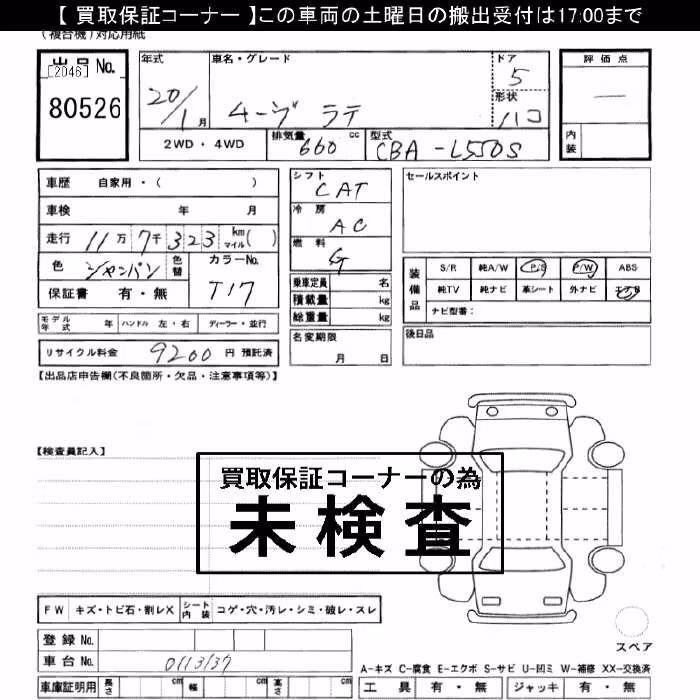 【 買取保証コーナー 】この車両の土曜日の搬出受付は17:00まで
(複合機)対応用紙
出品 No.
[2046]
80526
年式
20/1月
車名・グレード
ムーヴ ラテ
ドア
5
形状
ハコ
評価点
―
内装
2WD・4WD
排気量
660 cc
型式
CBA-L550S
車歴 自家用・( )
車検 年 月
走行 11万7千323 km マイル( )
色 シャンパン 色替
カラーNo.
T17
保証書 有・無
シフト
CAT
冷房
AC
燃料
G
乗車定員 名
積載量 kg
総重量 kg
セールスポイント
装備品
S/R 純A/W P/S P/W ABS
純TV 純ナビ 革シート 外ナビ エアB
ナビ型番:
モデル年式 年 ハンドル 左・右 ディーラー・並行
リサイクル料金 9200 円 預託済
名変期限
月 日
後日品
【出品店申告欄(不良箇所・欠品・注意事項等)】
【検査員記入】
買取保証コーナーの為
未検査
FW キズ・トビ石・割レX シート内装 コゲ・穴・汚レ・シミ・破レ・スレ
スペア
登録 No.
車台 No. 0113137
A-キズ C-腐食 E-エクボ S-サビ U-凹ミ W-補修 XX-交換済
車庫証明用 長さ cm 幅 cm 高さ cm
工具 有・無 ジャッキ 有・無